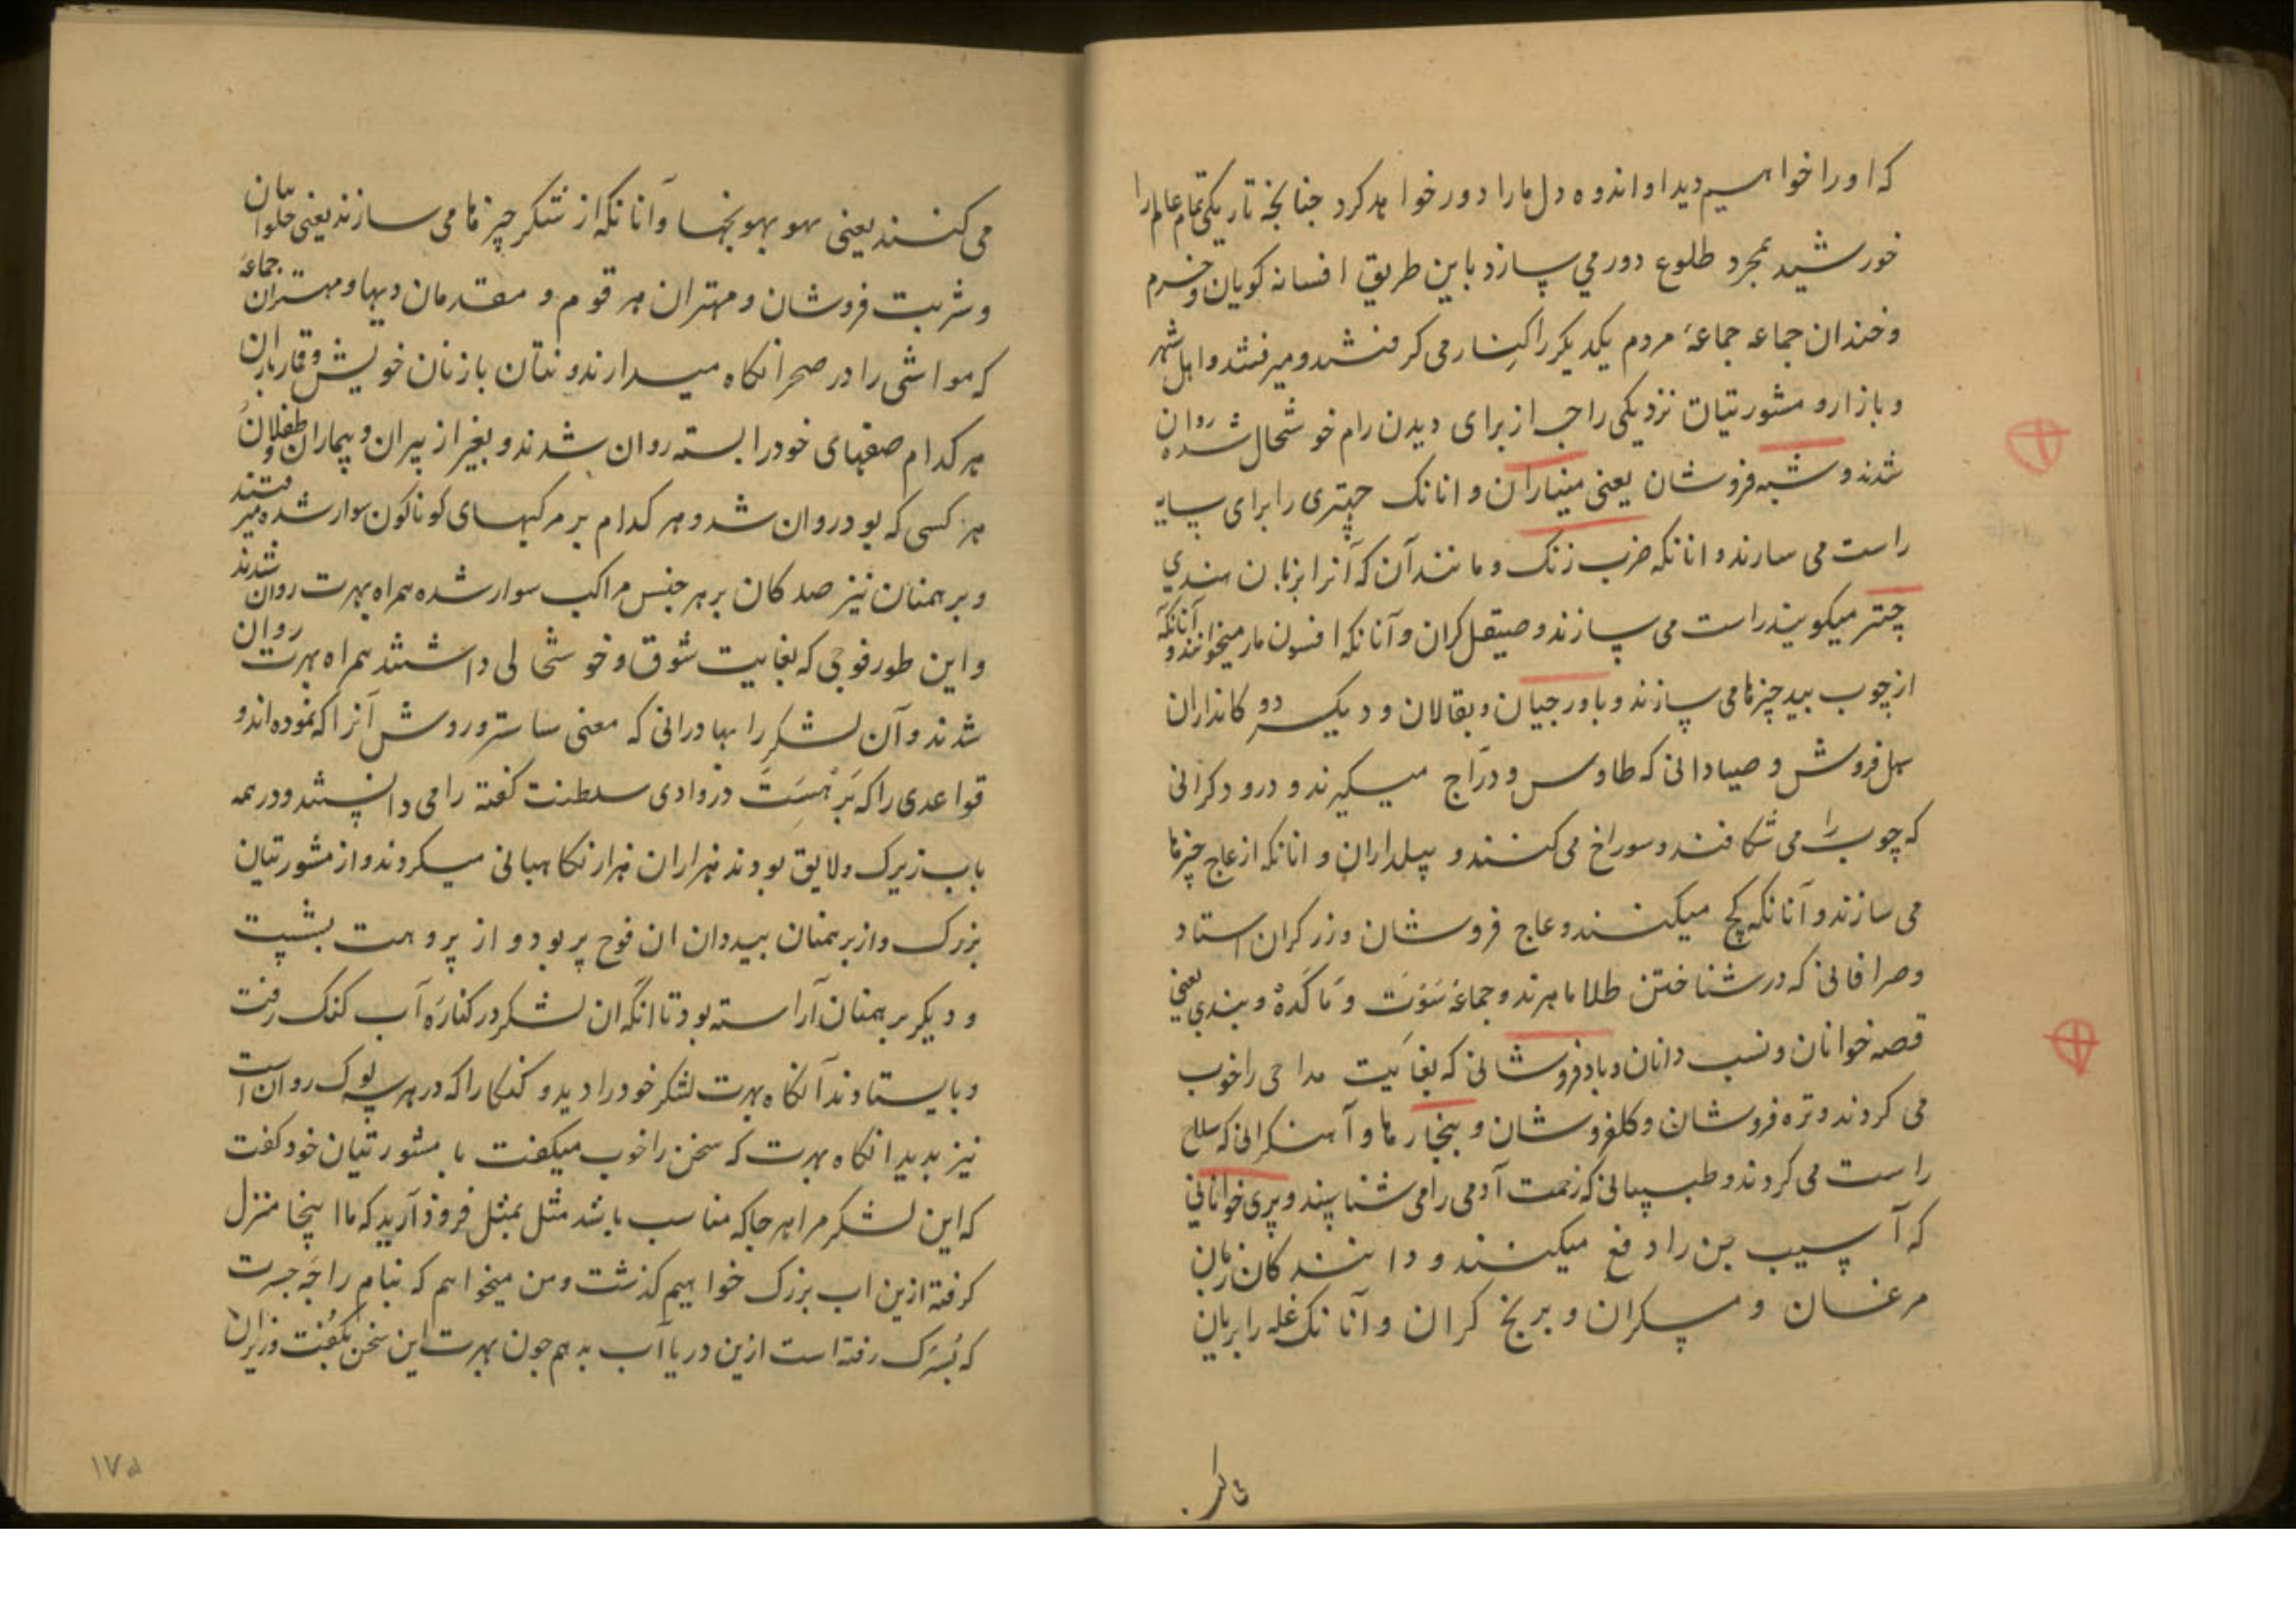 که او را خواهیم دید او اندوه دل ما را دور خواهد کرد چنانچه تاریکی تمام عالم را
خورشید بمجرد طلوع دور می سازد باین طریق افسانه کویان و خرم
و خندان جماعه جماعهٔ مردم یکدیکر را کنار می کرفتند و میرفتند و اهل شهر
و بازار و مشورتیان نزدیکی راجه از برای دیدن رام خوشحال شده روان
شدند و شیشه فروشان یعنی منیاران و انانک چتری را برای سایه
راست می سازند و انانکه ضرب زنک و مانند آن که آنرا بزبان هندی
چتر میکویند راست می سازند و صیقل کران و آنانکه افسون مار میخوانند و آنانکه
از چوب بید چیزها می سازند و باورچیان و بقالان و دیکر دوکانداران
سهل فروش و صیادانی که طاوس و دراج میکیرند و درودکرانی
که چوب را می شکافند و سوراخ می کنند و پیلداران و انانکه از عاج چیزها
می سازند و آنانکه کچ میکنند و عاج فروشان و زرکران استاد
و صرافانی که در شناختن طلا ماهرند و جماعهٔ سوت و ماکده و بندی یعنی
قصه خوانان و نسب دانان و بادفروشانی که بغایت مداحی را خوب
می کردند و تره فروشان و کلفروشان و بنجارها و آهنکرانی که سلاح
راست می کردند و طبیبانی که زحمت آدمی را می شناسند و پری خوانانی
که آسیب جن را دفع میکنند و دانندکان زبان
مرغان و مسکران و برنج کران و آنانک غله را بریان
می کنند یعنی بهو بهونجها و آنانکه از شکر چیزها می سازند یعنی حلوائیان
و شربت فروشان و مهتران هر قوم و مقدمان دیها و مهتران جماعهٔ
که مواشی را در صحرا نکاه میدارند و نتان با زنان خویش و قماربازان
هر کدام صفهای خود را بسته روان شدند و بغیر از پیران و بیماران و طفلان
هر کسی که بود روان شد و هر کدام بر مرکبهای کوناکون سوار شده میرفتند
و برهمنان نیز صدکان بر هر جنس مراکب سوار شده همراه بهرت روان شدند
و این طور فوجی که بغایت شوق و خوشحالی داشتند همراه بهرت روان
شدند و آن لشکر را بهادرانی که معنی ساستر و روش آنرا که نموده اند و
قواعدی را که برهسپت در وادی سلطنت کفته را می دانستند و در همه
باب زیرک و لایق بودند هزاران هزار نکاهبانی میکردند و از مشورتیان
بزرک و از برهمنان بیددان ان فوج پر بود و از پروهت بشست
و دیکر برهمنان آراسته بود تا انکه ان لشکر در کنارهٔ آب کنک رفت
و بایستادند آنکاه بهرت لشکر خود را دید و کنکا را که در هر سه لوک روان است
نیز بدید انکاه بهرت که سخن را خوب میکفت با مشورتیان خود کفت
که این لشکر مرا هر جا که مناسب باشد مثل بمثل فرود آرید که ما اینجا منزل
کرفته ازین اب بزرک خواهیم کذشت و من میخواهم که بنام راجه جسرت
که بسرک رفته است ازین دریا آب بدهم چون بهرت این سخن بکفت وزیران
۱۷۵